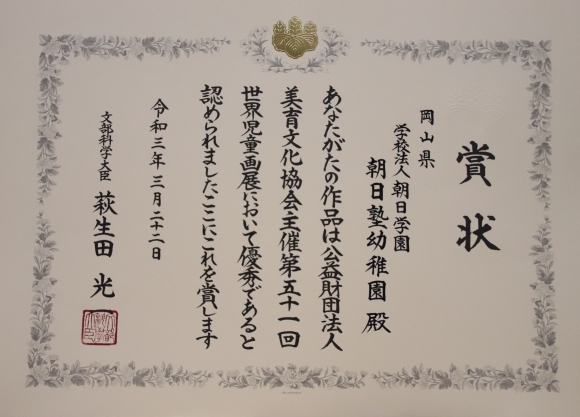 賞状
岡山県
学校法人朝日学園
朝日塾幼稚園殿
あなたがたの作品は公益財団法人
美育文化協会主催第五十一回
世界児童画展において優秀であると
認められましたここにこれを賞します
令和三年三月二十二日
文部科学大臣 萩生田光